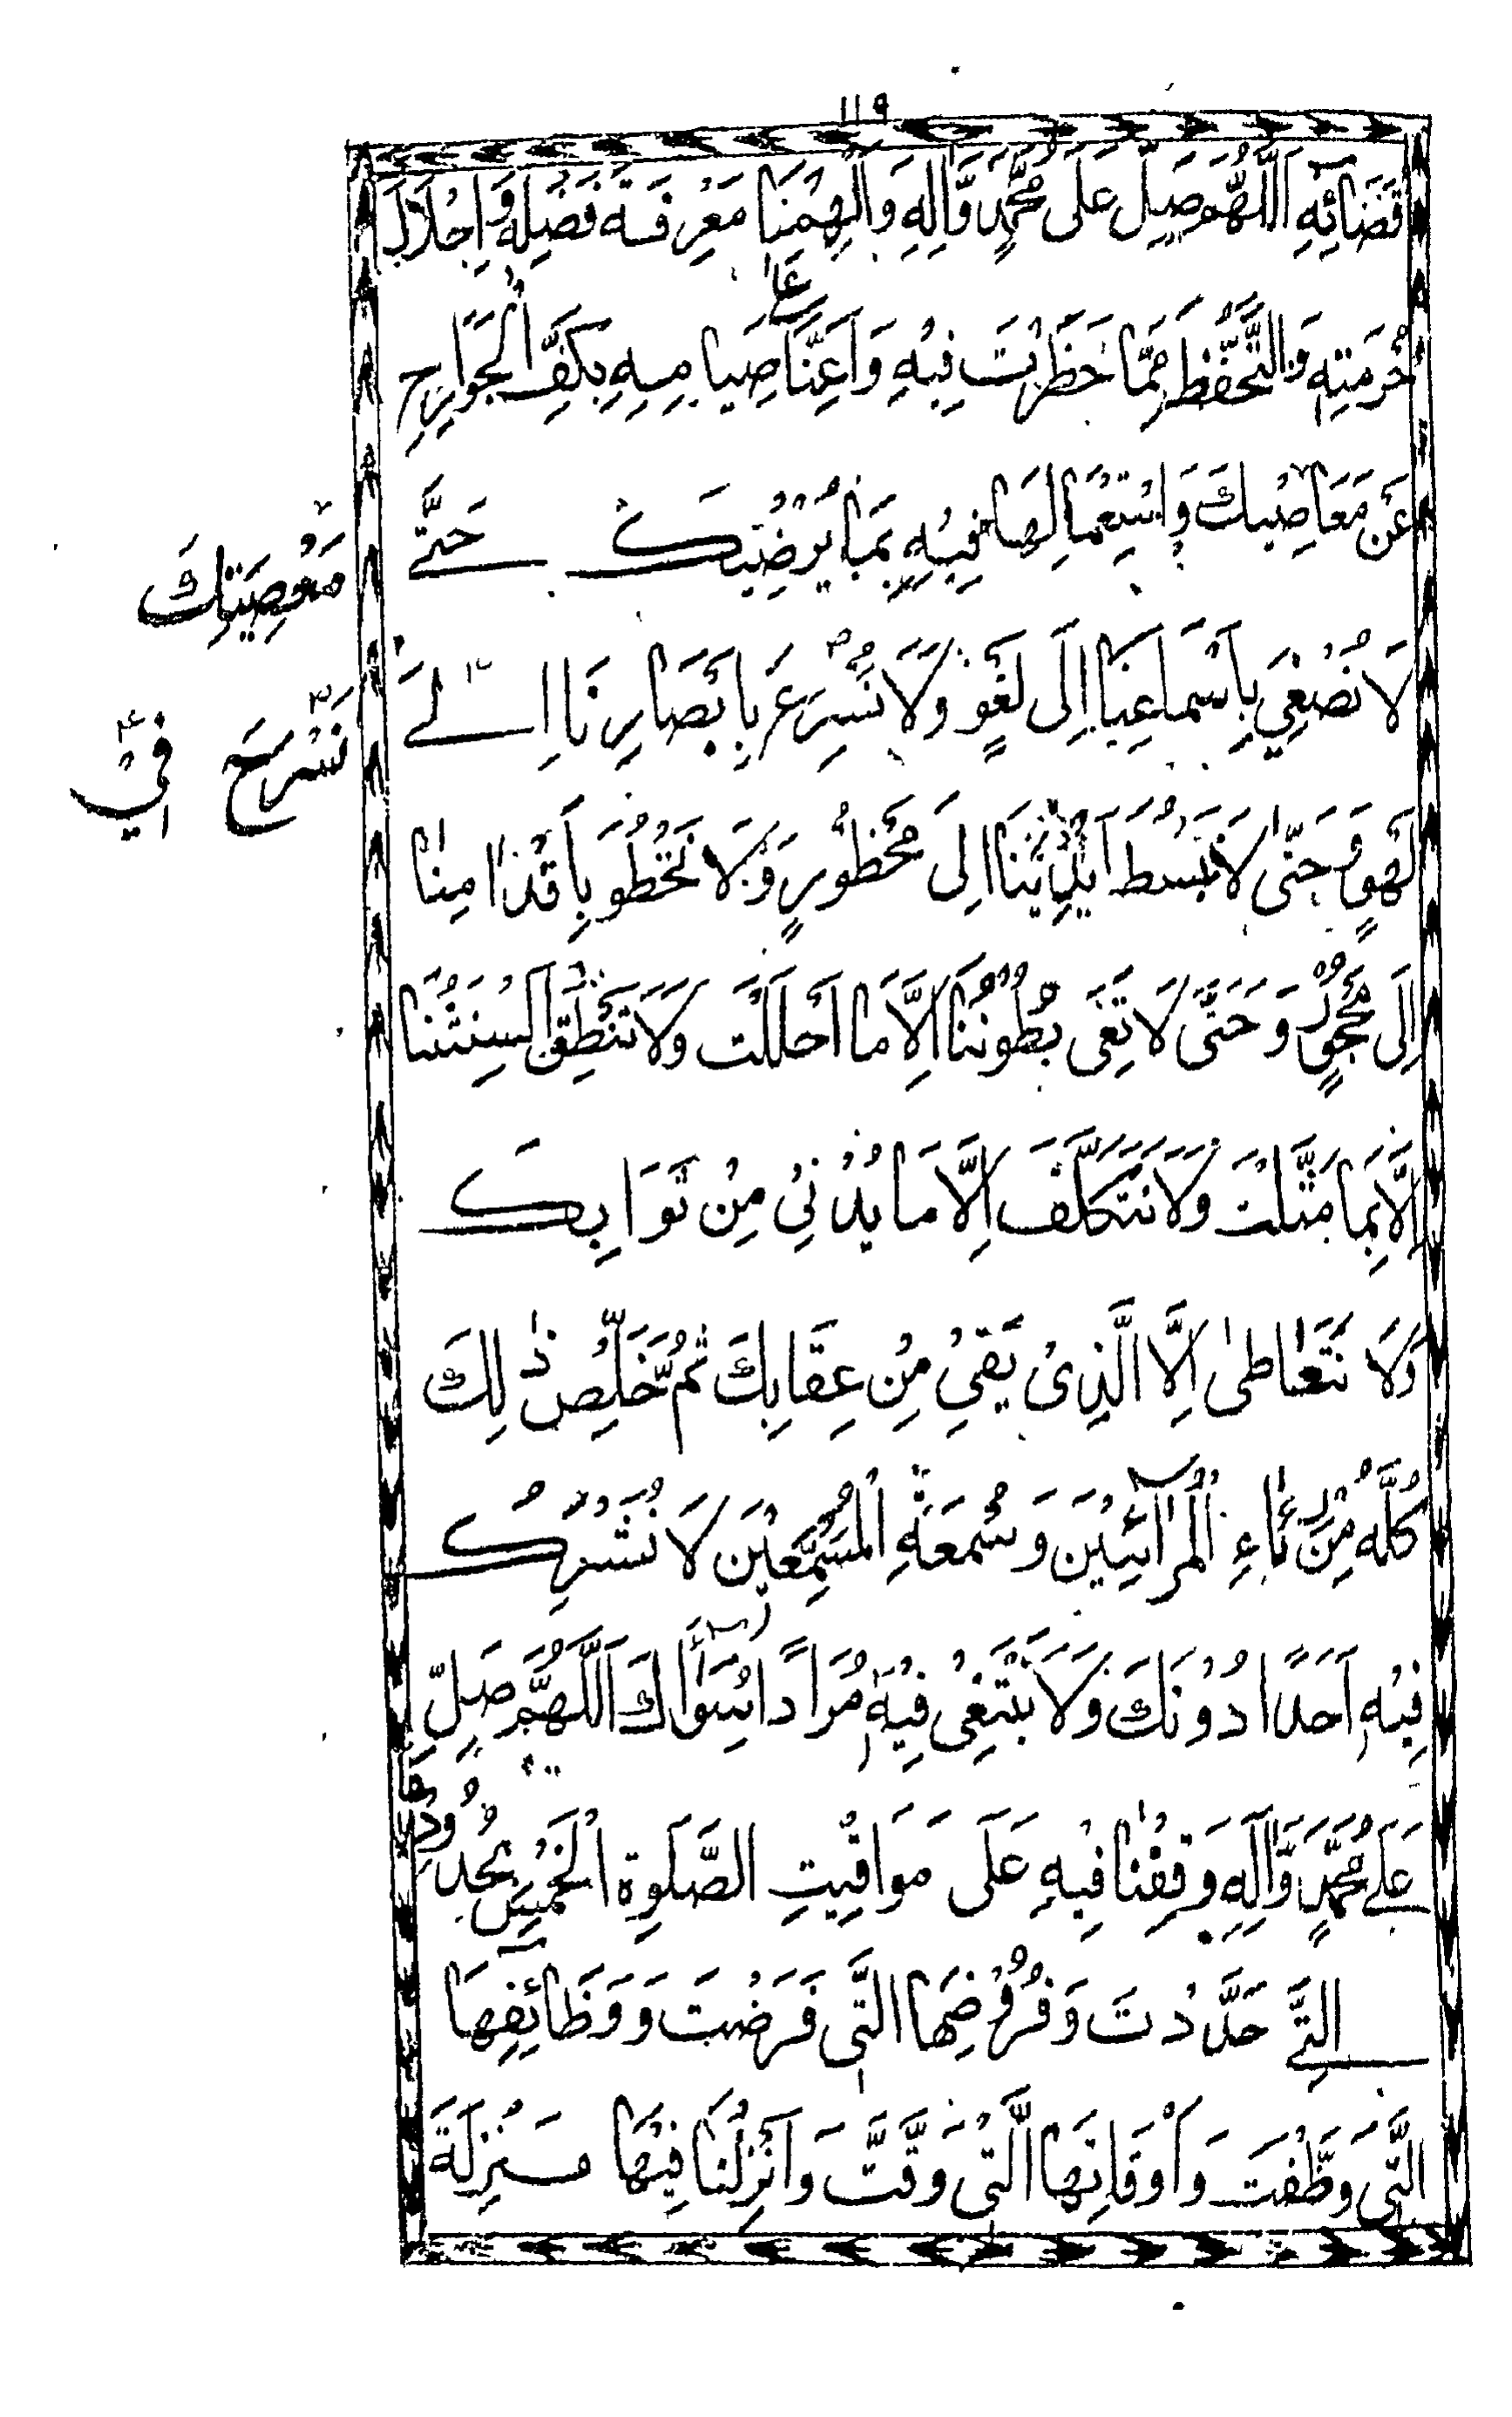 ١١٩
قَضَائِهِ اَللّٰهُمَّ صَلِّ عَلَى مُحَمَّدٍ وَّاٰلِهِ وَاَلْهِمْنَا مَعْرِفَةَ فَضْلِهِ وَاِجْلَالَ
حُرْمَتِهِ وَالتَّحَفُّظَ مِمَّا حَظَرْتَ فِيْهِ وَاَعِنَّا عَلٰى صِيَامِهِ بِكَفِّ الْجَوَارِحِ
عَنْ مَعَاصِيْكَ وَاسْتِعْمَالِهَا فِيْهِ بِمَا يُرْضِيْكَ حَتّٰى
مَعْصِيَتِكَ
لَا نُصْغِيَ بِاَسْمَاعِنَا اِلَى لَغْوٍ وَلَا نُسْرِعَ بِاَبْصَارِنَا اِلَى
نَسْرَحَ فِيْ
لَهْوٍ وَحَتّٰى لَا نَبْسُطَ اَيْدِيَنَا اِلَى مَحْظُوْرٍ وَّلَا نَخْطُوَ بِاَقْدَامِنَا
اِلَى مَحْجُوْرٍ وَحَتّٰى لَا تَعِيَ بُطُوْنُنَا اِلَّا مَا اَحْلَلْتَ وَلَا تَنْطِقَ اَلْسِنَتُنَا
اِلَّا بِمَا مَثَّلْتَ وَلَا نَتَكَلَّفَ اِلَّا مَا يُدْنِيْ مِنْ ثَوَابِكَ
وَلَا نَتَعَاطٰى اِلَّا الَّذِىْ يَقِىْ مِنْ عِقَابِكَ ثُمَّ خَلِّصْ ذٰلِكَ
كُلَّهُ مِنْ رِئَاءِ الْمُرَآئِيْنَ وَسُمْعَةِ الْمُسْمِعِيْنَ لَا نُشْرِكُ
فِيْهِ اَحَدًا دُوْنَكَ وَلَا نَبْتَغِيْ فِيْهِ مُرَادًا سِوَاكَ اَللّٰهُمَّ صَلِّ
عَلٰى مُحَمَّدٍ وَّاٰلِهِ وَقِفْنَا فِيْهِ عَلَى مَوَاقِيْتِ الصَّلَوةِ الْخَمْسِ بِحُدُوْدِهَا
الَّتِيْ حَدَّدْتَ وَفُرُوْضِهَا الَّتِي فَرَضْتَ وَوَظَآئِفِهَا
الَّتِي وَظَّفْتَ وَاَوْقَاتِهَا الَّتِي وَقَّتَّ وَاَنْزِلْنَا فِيْهَا مَنْزِلَةَ